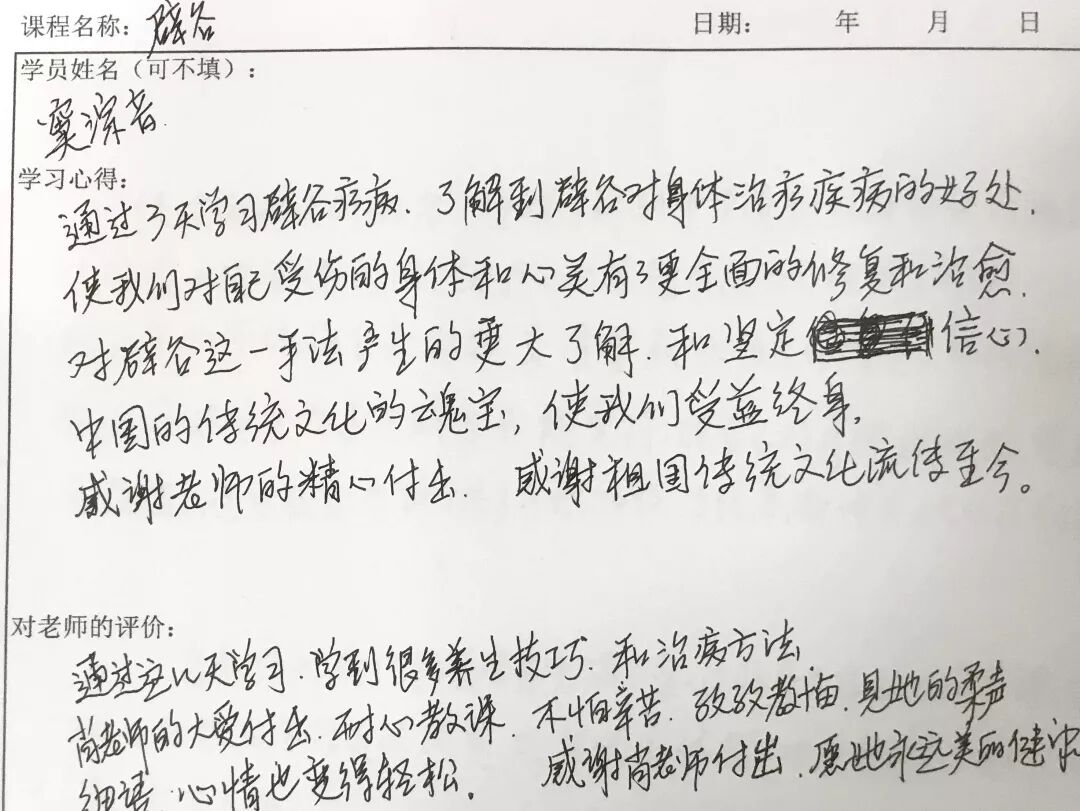 课程名称：辟谷 日期： 年 月 日
学员姓名（可不填）：
窦深音
学习心得：
通过3天学习辟谷疗病．了解到辟谷对身体治疗疾病的好处．
使我们对自己受伤的身体和心美有了更全面的修复和治愈．
对辟谷这一手法产生的更大了解．和坚定信心．
中国的传统文化的魂宝，使我们受益终身。
感谢老师的精心付出． 感谢祖国传统文化流传至今。
对老师的评价：
通过这几天学习．学到很多养生技巧．和治病方法．
尚老师的大爱付出．耐心教课．不怕辛苦．孜孜教悔．具她的柔声
细语．心情也变得轻松． 感谢尚老师付出．愿她永远美的健康